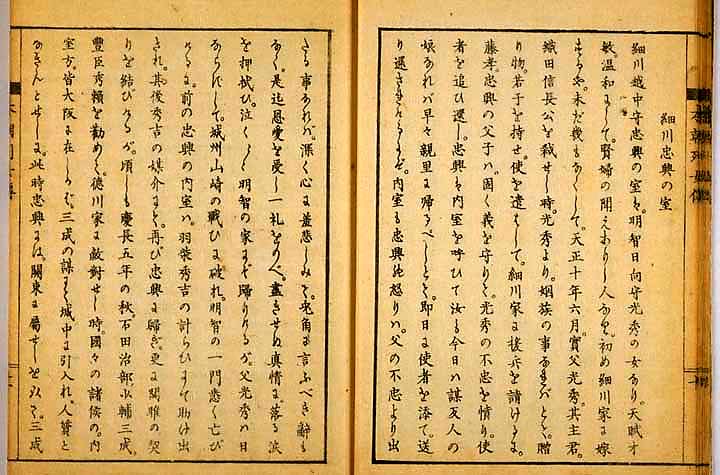 細川忠興の室
細川越中守忠興の室も。明智日向守光秀の女なり。天賦才
敏温和にして。賢婦の聞えありし人なり。初め細川家に嫁
する や。未だ幾もなくして。天正十年六月。實父光秀。其主君。
織田信長公を弑せし時。光秀より。姻族の事なればとて。贈
り物。若子を持せ。使を遣はして。細川家に援兵を請けるよ。
藤孝。忠興の父子ハ。固く義を守りて。光秀の不忠を憤り。使
者を追ひ還し。忠興も内室を呼ひて汝も今日ハ謀反人の
娘なれバ早々親里に帰るべしとて。即日に使者を添て。送
り還さきんとするよぞ。内室も忠興の怒りハ。父の不忠より出
たる事なれバ。深く心に羞悲しみて。兎角に言ふべき辭も
なく。是迄恩愛を受し一礼をのべ。盡きせぬ真情に。落る涙
を押拭ひ。泣く〳〵明智の家にぞ歸りけるが。父光秀ハ日
ならずして。城州山崎の戰ひに破れ。明智の一門悉く亡び
ける に。前の忠興の内室ハ。羽柴秀吉の計らひにて助け出
され。其後秀吉の媒介にて。再び忠興に歸ぎ。更に關雎の契
りを結びけるが。頃しも慶長五年の秋。石田治部少輔三成。
豊臣秀頼を勸めて。德川家に敵對せし時。國々の諸侯の。内
室方。皆大阪に在しかバ。三成の謀にて城中に引入れ。人質と
なさんとせしに。此時忠興にハ。關東に屬せしを以て。三成